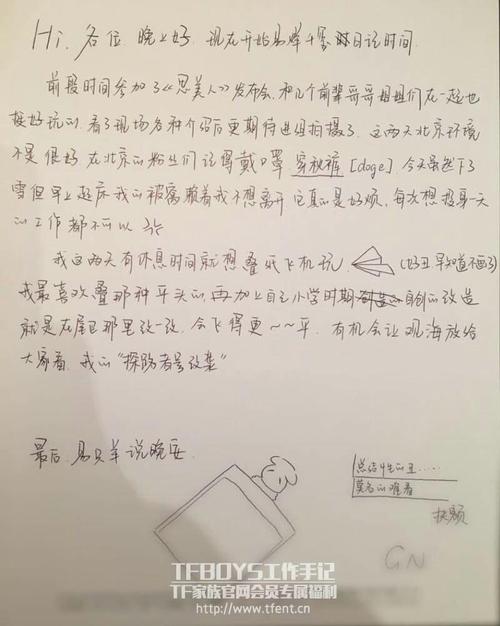 Hi, 各位 晚上好. 现在开始易烊千玺日记时间
前段时间参加了《思美人》发布会, 和几个前辈哥哥姐姐们在一起也
挺好玩的. 看了现场各种介绍后更期待进组拍摄了. 这两天北京环境
不是很好 在北京的粉丝们记得戴口罩 穿秋裤 [doge] 今天虽然下了
雪但早上起床我的被窝赖着我不想离开 它真的是好烦, 每次想投身一天
的工作都不可以
我这两天有休息时间就想叠纸飞机玩. (好丑, 早知道不画了)
我最喜欢叠那种平头的, 再加上自己小学时期自创的改造
就是在尾巴那里改一改. 会飞得更~~平. 有机会让观海放给
大家看. 我的“探险者号改装”
最后. 易只羊说晚安
总结性的丑.....
莫名的难看
扶额
GN
TFBOYS工作手记
TF家族官网会员专属福利
http://www.tfent.cn